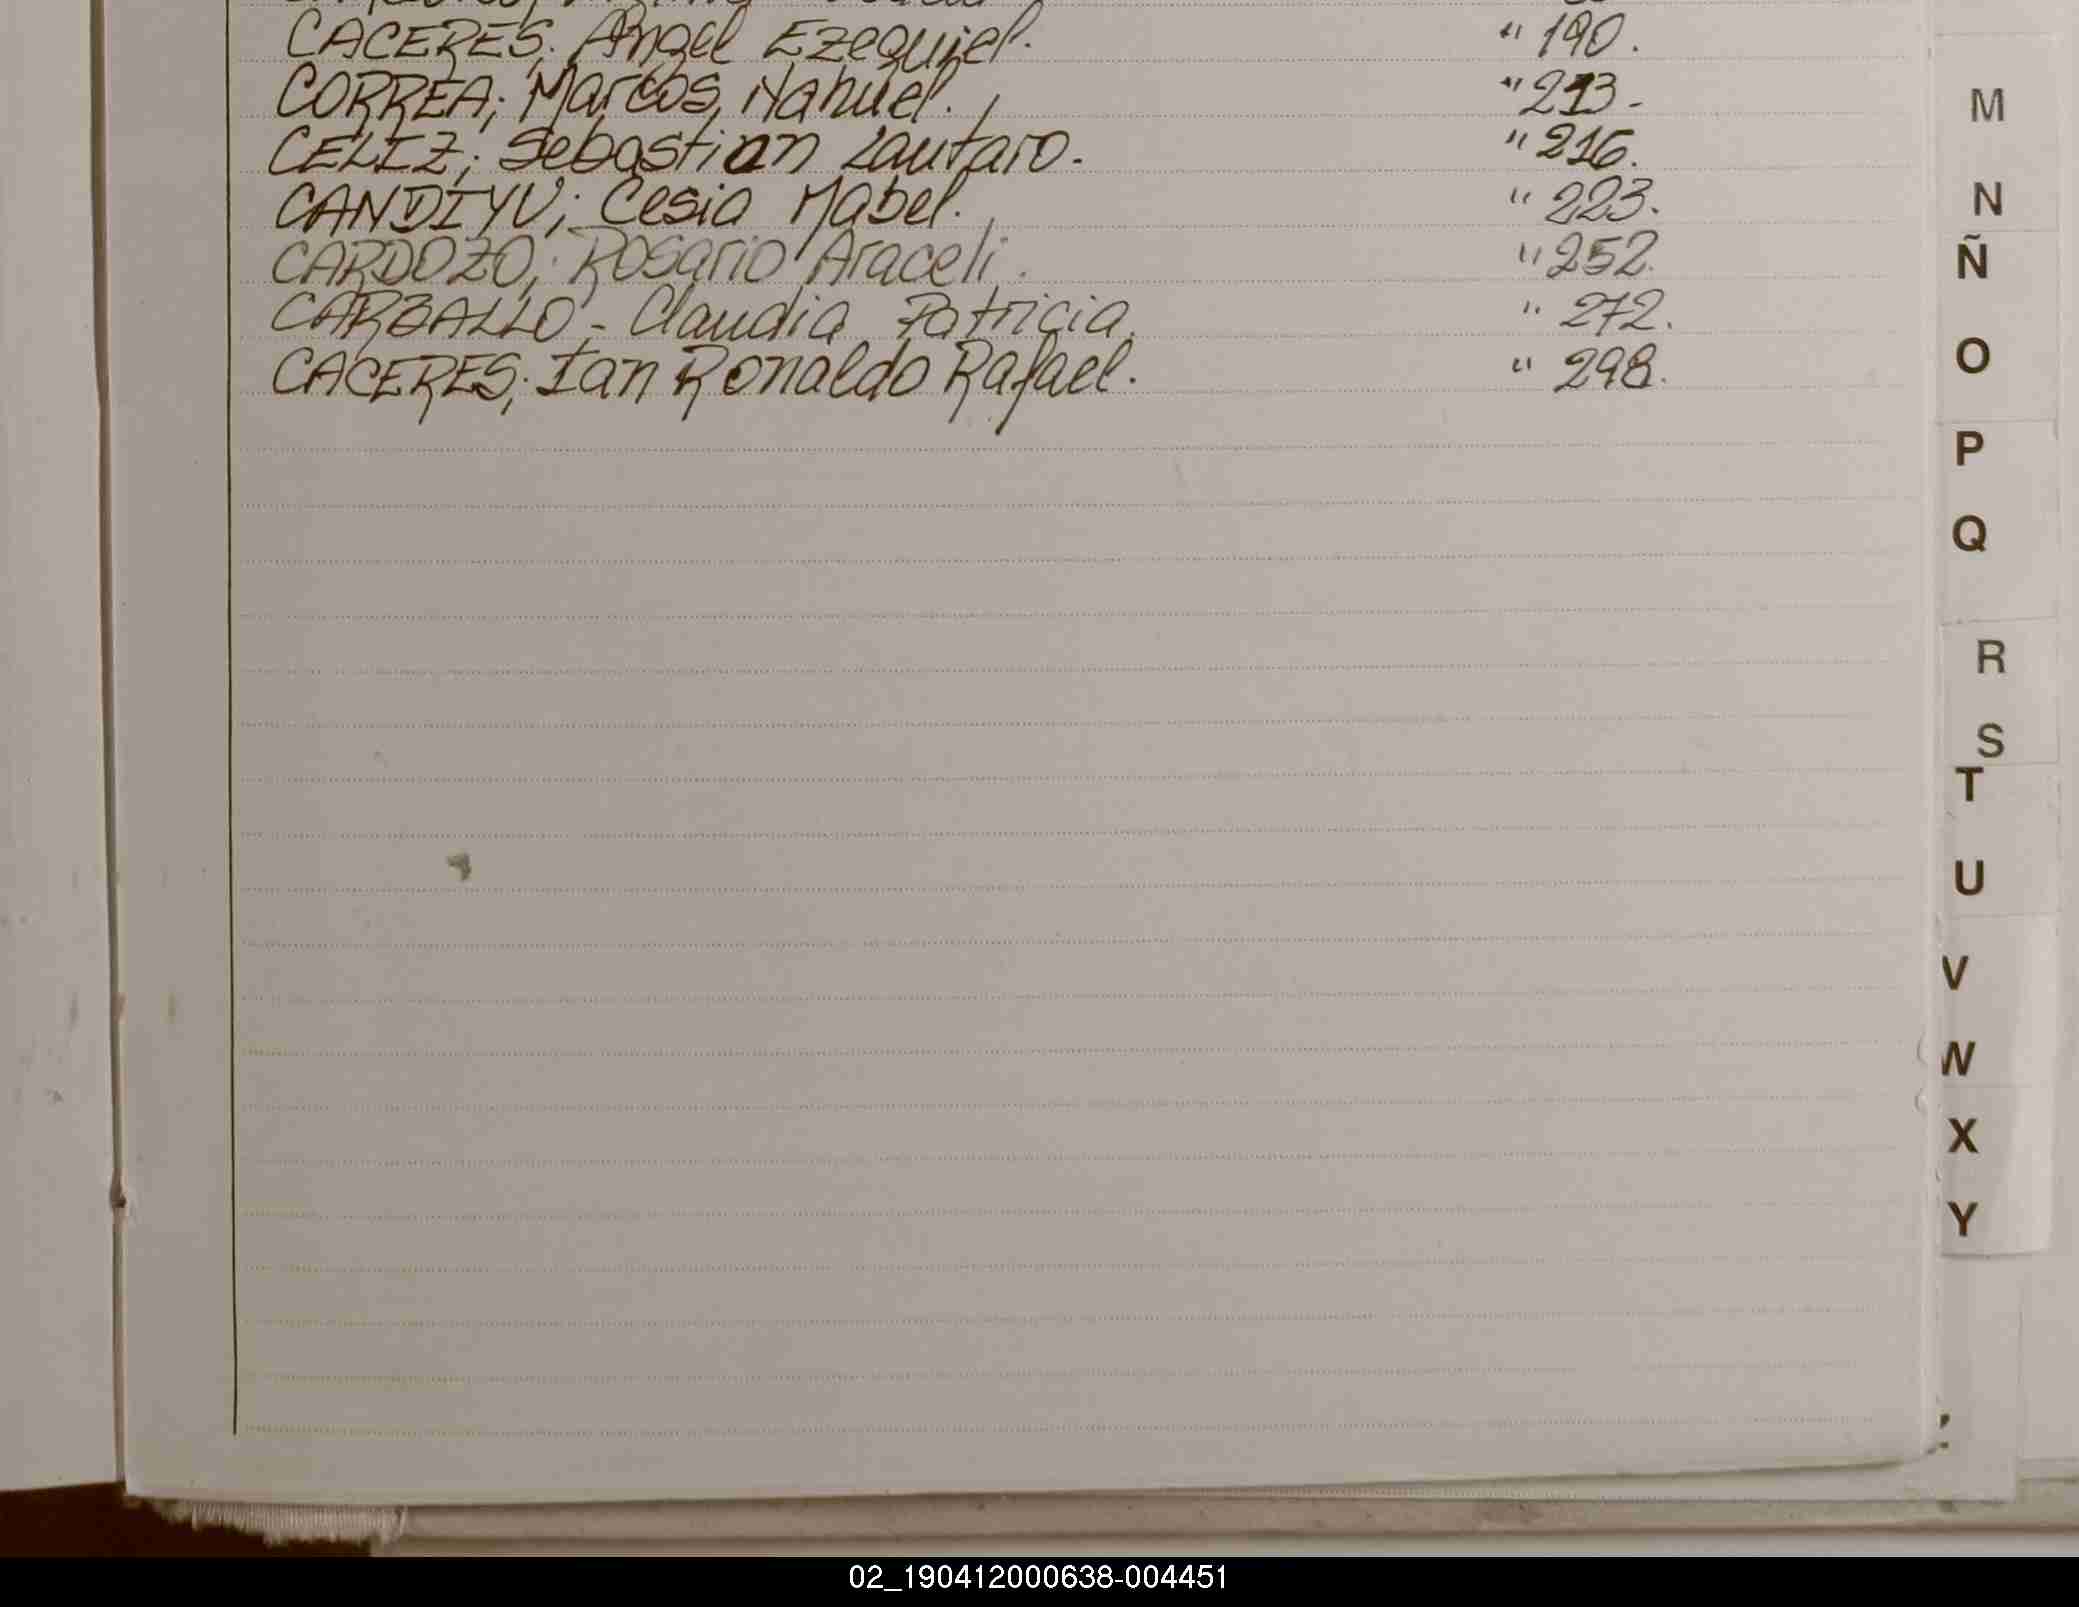 CACERES; Ángel Ezequiel. " 190.
CORREA; Marcos Nahuel. " 213-
CELIZ; Sebastian Lautaro. " 216.
CANDIYU; Cesia Mabel. " 223.
CARDOZO; Rosario Araceli. " 252.
CARBALLO - Claudia Patricia. " 272.
CACERES; Ian Ronaldo Rafael. " 298.
M
N
Ñ
O
P
Q
R
S
T
U
V
W
X
Y
02_190412000638-004451